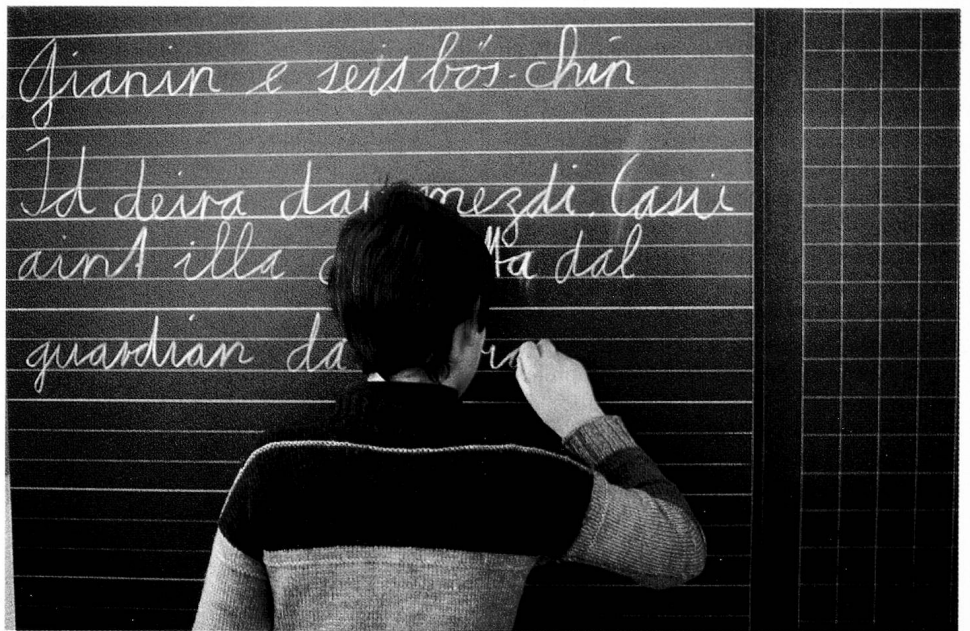 Gianin e seis bös-chin
Id deira Casü
aint illa dal
guardian